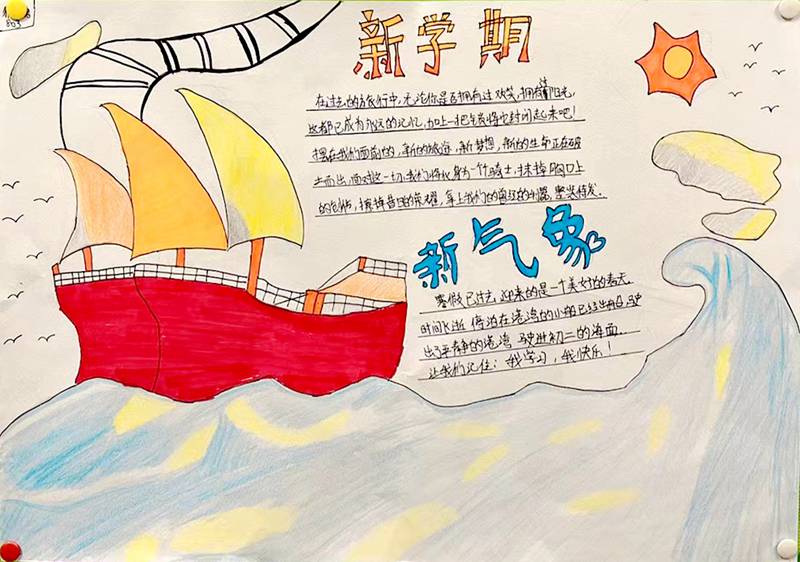 803
新学期
在过去的旅行中,无论你是否拥有过欢笑,拥有过阳光,
这都已成为永远的记忆,加上一把锁将它封闭起来吧!
摆在我们面前的,新的旅途,新梦想,新的生命正在破
土而出,面对这一切,我们将化身为一个骑士,抹掉胸口上
的创伤,擦掉昔日的荣耀,拿上我们的利器,整装待发.
新气象
寒假已过去,迎来的是一个美好的春天,
时间飞逝 停泊在港湾的小船已经出航,驶
出了平静的港湾 驶进初二的海面.
让我们记住:我学习,我快乐!